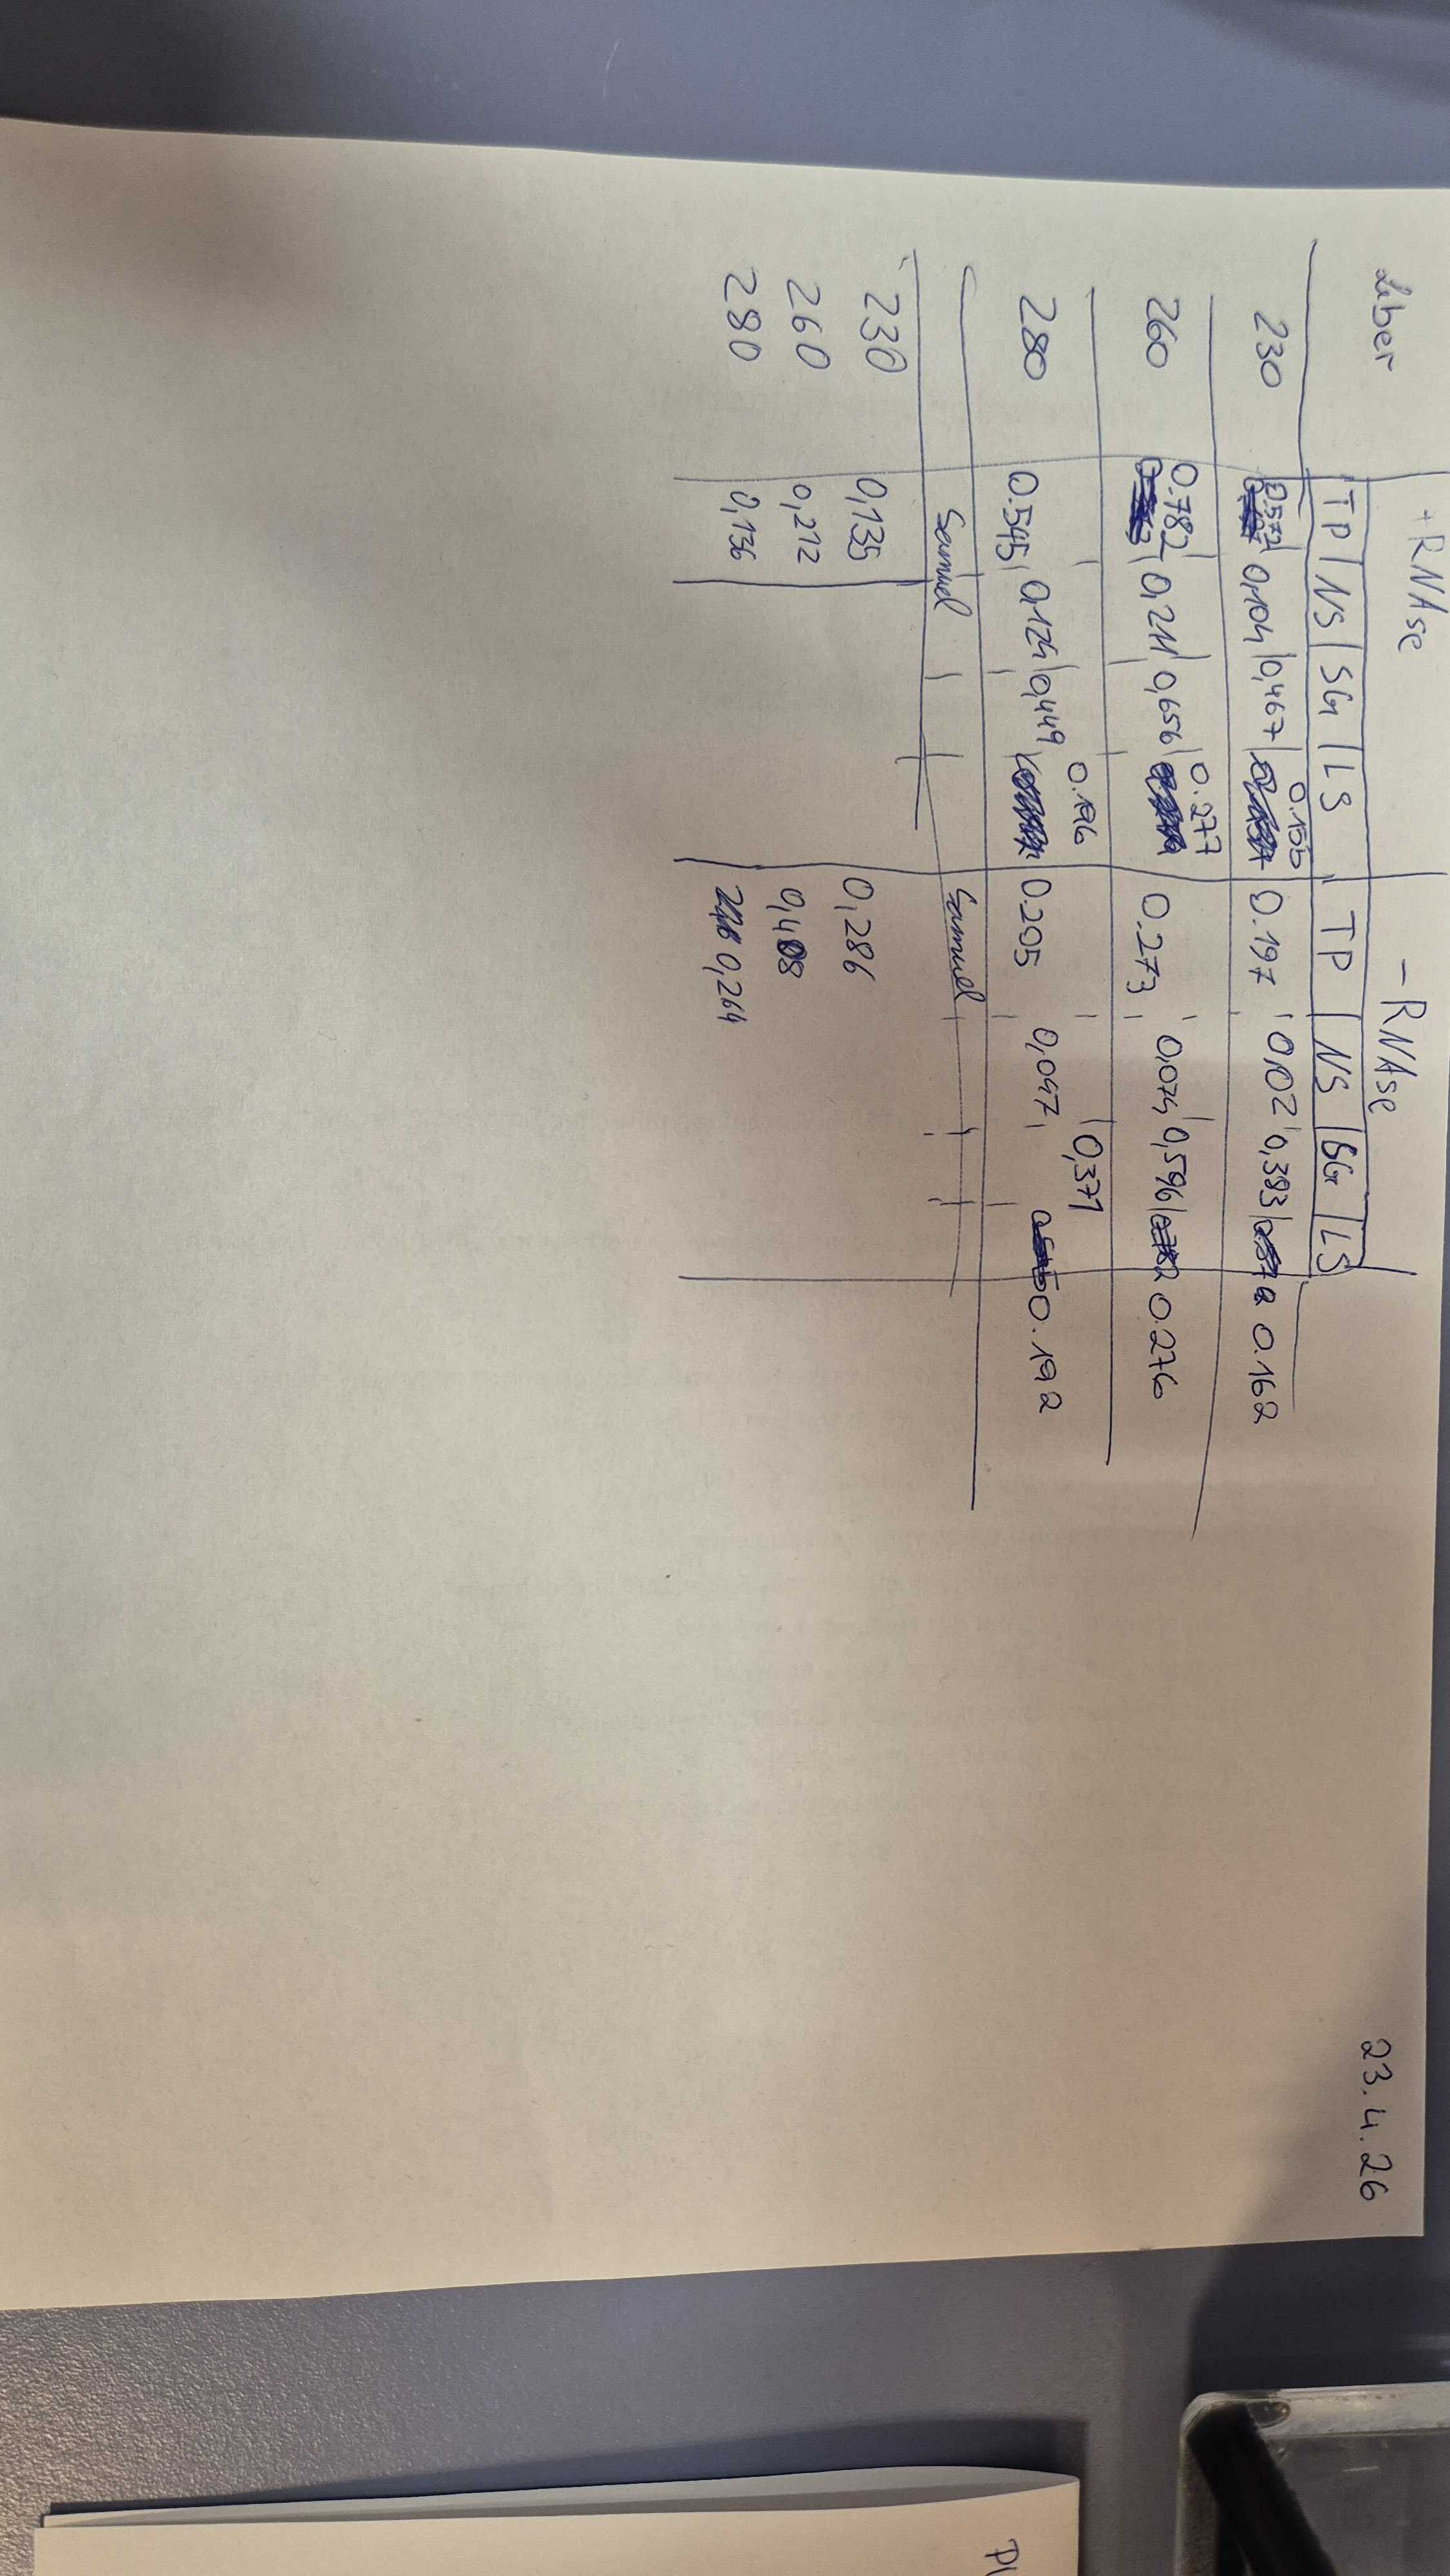 23.4.26
Leber + RNAse - RNAse
TP NS SG LS TP NS SG LS
230 0.572 0,104 0,467 0.155 0.197 0,102 0,393 0.162
260 0.782 0,211 0,656 0.277 0.273 0,074 0,596 0.276
280 0.545 0,124 0,449 0.196 0.205 0,047 0,371 0.192
Samuel Samuel
230 0,135 0,286
260 0,212 0,408
280 0,136 0,264